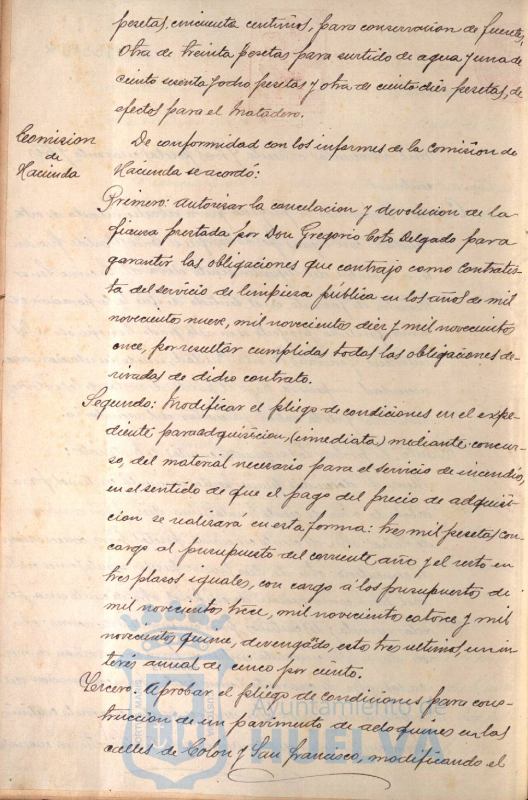 pesetas, cincuenta centimos, para conservacion de fuentes,
otra de treinta pesetas para surtido de agua y una de
ciento sesenta y ocho pesetas y otra de ciento diez pesetas, de
efectos para el Matadero.
Comision
de
Hacienda
De conformidad con los informes de la Comision de
Hacienda se acordó:
Primero: Autorizar la cancelacion y devolucion de la
fianza prestada por Don Gregorio Coto Delgado para
garantir las obligaciones que contrajo como contratis-
ta del servicio de limpieza pública en los años de mil
novecientos nueve, mil novecientos diez y mil novecientos
once, por resultar cumplidas todas las obligaciones de-
rivadas de dicho contrato.
Segundo: Modificar el pliego de condiciones en el expe-
diente para adquisicion, (inmediata) mediante concur-
so, del material necesario para el servicio de incendio,
en el sentido de que el pago del precio de adquisi-
cion se realizará en esta forma: tres mil pesetas con
cargo al presupuesto del corriente año y el resto en
tres plasos iguales, con cargo á los presupuestos de
mil novecientos trece, mil novecientos catorce y mil
novecientos quince, devengando, estos tres ultimos, un in-
terés anual de cinco por ciento.
Tercero. Aprobar el pliego de condiciones para cons-
truccion de un pavimento de adoquines en las
calles de Colon y San Francisco, modificando el
Ayuntamiento de
HUELVA